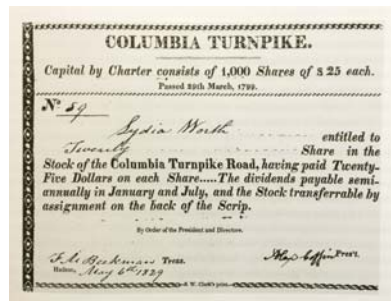 COLUMBIA TURNPIKE.
Capital by Charter consists of 1,000 Shares of $ 25 each.
Passed 29th March, 1799.
No 59
Lydia Worth entitled to
Twenty Share in the
Stock of the Columbia Turnpike Road, having paid Twenty-
Five Dollars on each Share.....The dividends payable semi-
annually in January and July, and the Stock transferrable by
assignment on the back of the Scrip.
By Order of the President and Directors.
Treas.
Alex Coffin Pres't.
Hudson, May 6th 1829